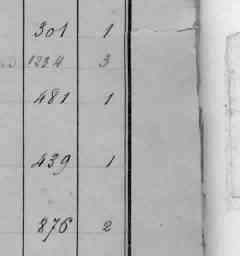 301 1
1234 3
481 1
439 1
876 2